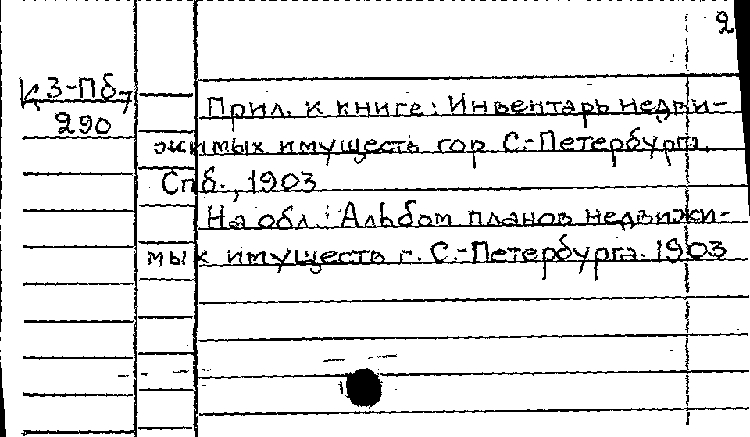 2
К 3-Пб, 290
Прил. к книге: Инвентарь недви-
жимых имуществ гор. С.-Петербурга.
Спб., 1903
На обл.: Альбом планов недвижи-
мых имуществ г. С.-Петербурга. 1903